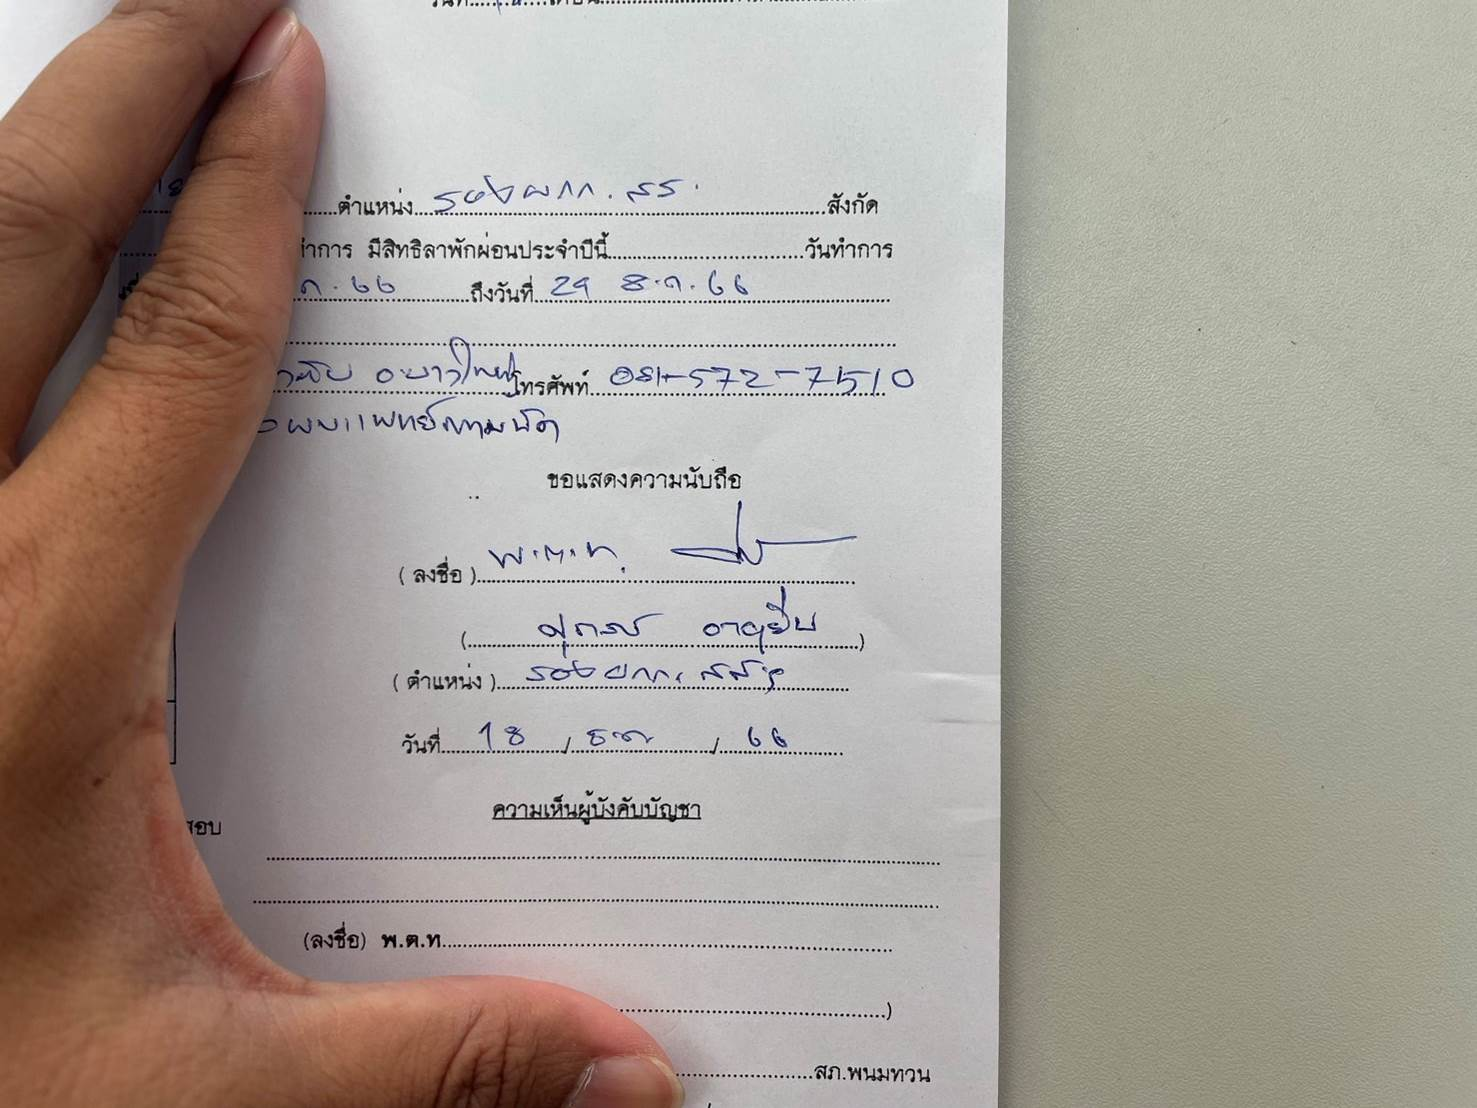 ตำแหน่ง รองผกก.สส. สังกัด
ทำการ มีสิทธิลาพักผ่อนประจำปีนี้ วันทำการ
ค.66 ถึงวันที่ 29 ธ.ค.66
โทรศัพท์ 081-572-7510
พบแพทย์ตามนัด
ขอแสดงความนับถือ
( ลงชื่อ ) พ.ต.ท.
( )
( ตำแหน่ง ) รองผกก.สสฯ
วันที่ 18 / ธค / 66
ความเห็นผู้บังคับบัญชา
สอบ
(ลงชื่อ) พ.ต.ท
)
สภ.พนมทวน